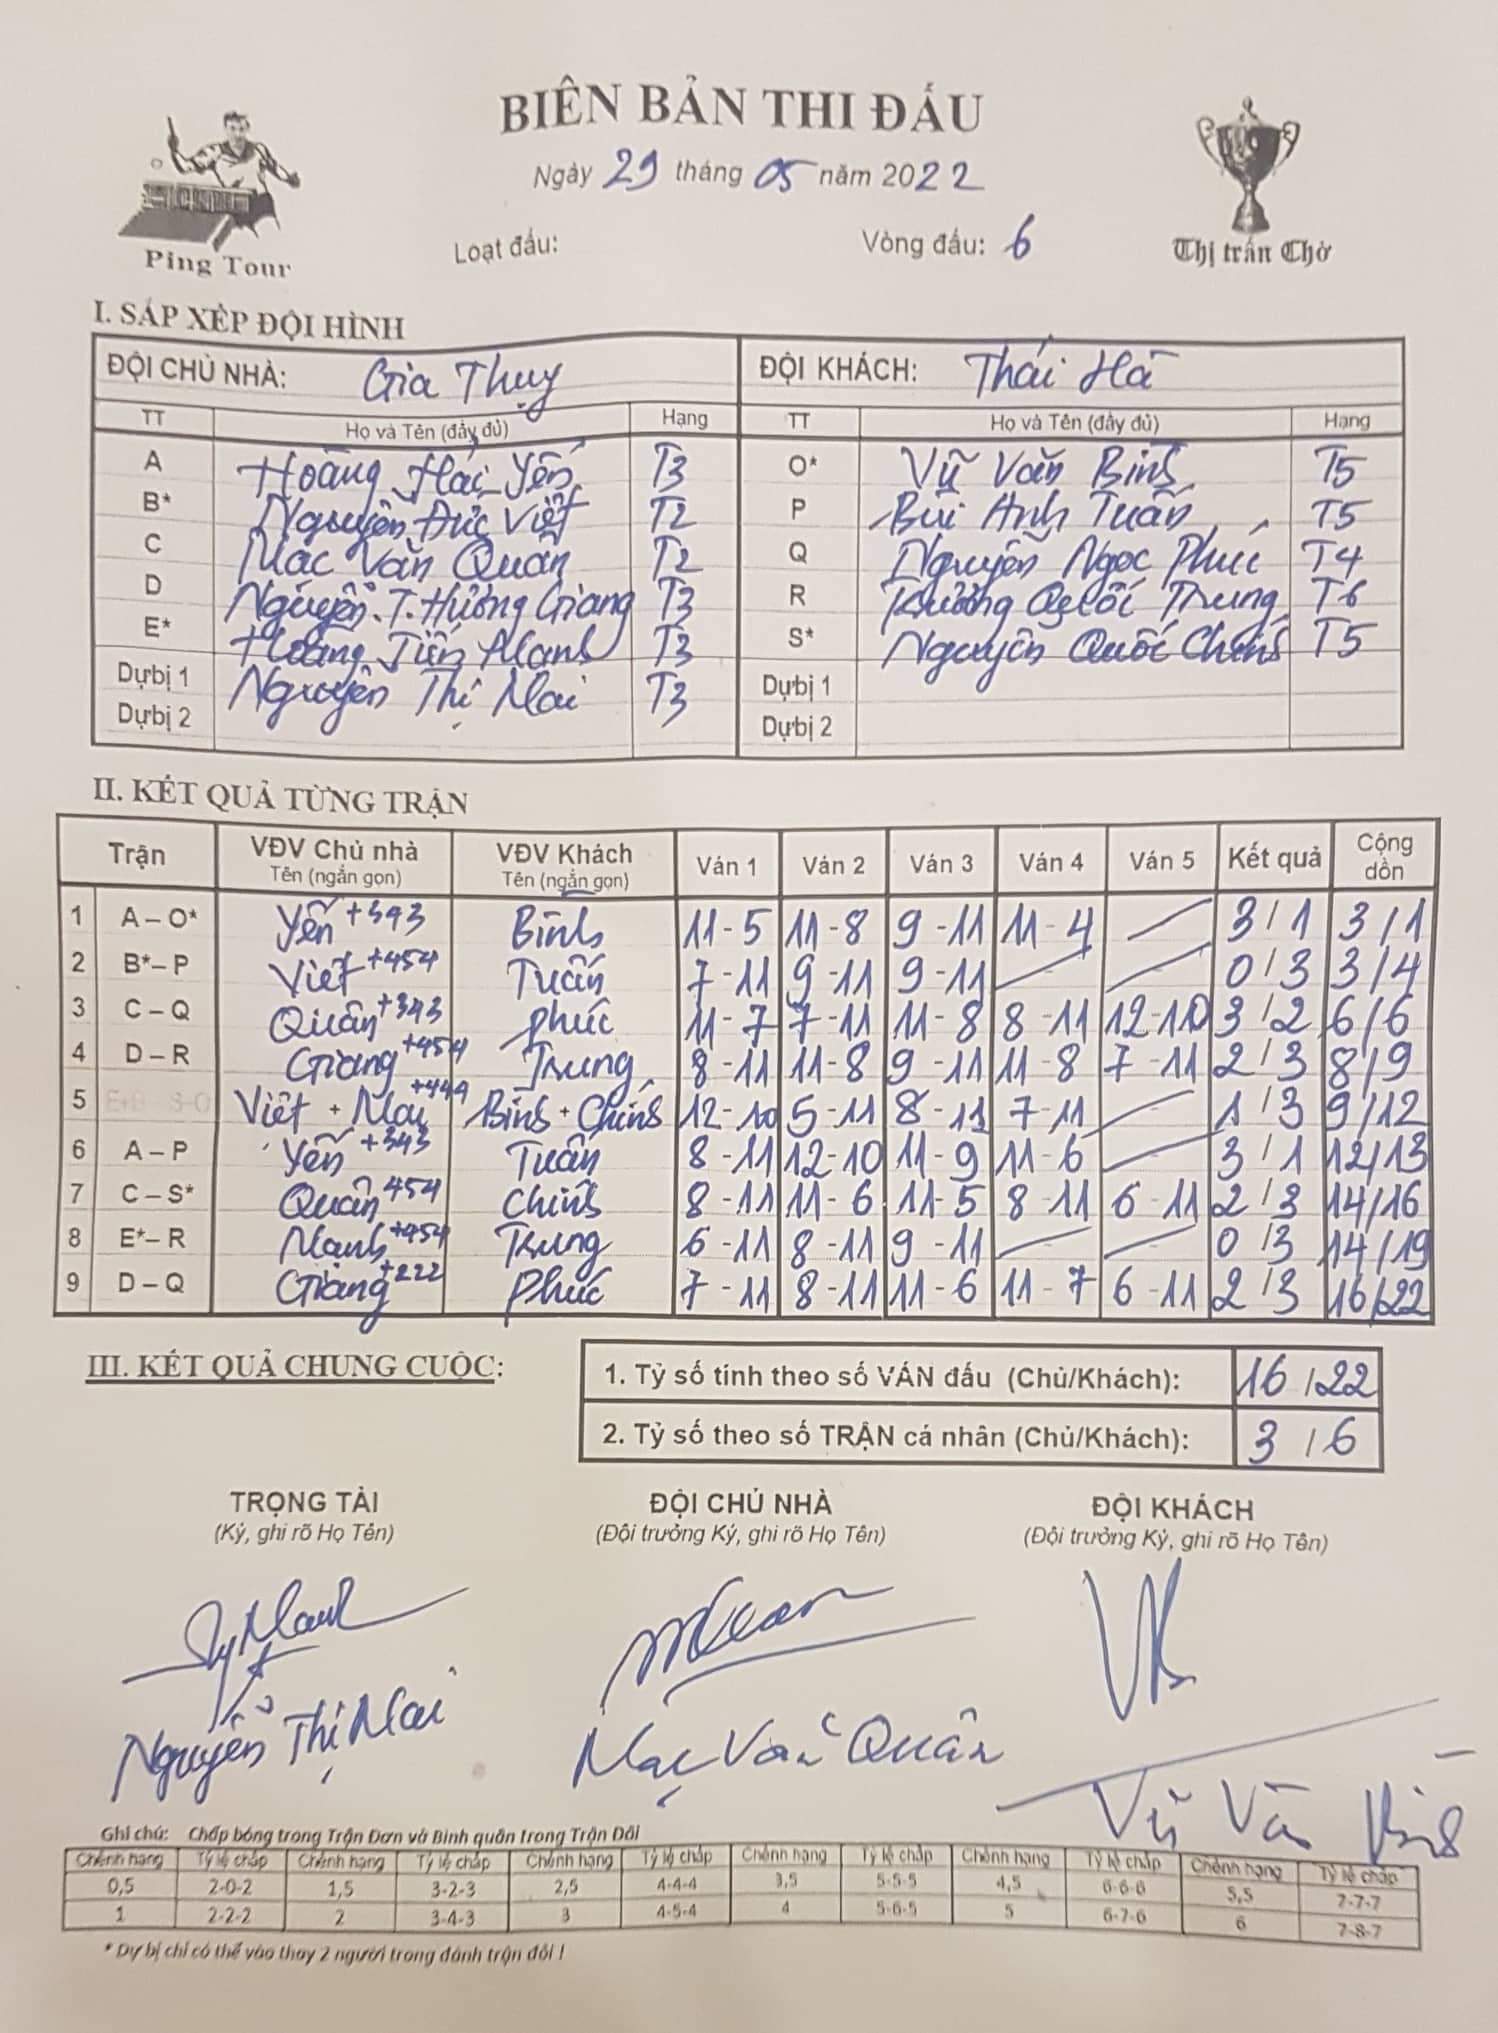 BIÊN BẢN THI ĐẤU
Ngày 29 tháng 05 năm 2022
Ping Tour
Loạt đấu:
Vòng đấu: 6
Thị trấn Chờ
I. SẮP XẾP ĐỘI HÌNH
ĐỘI CHỦ NHÀ: Gia Thụy ĐỘI KHÁCH: Thái Hà
TT Họ và Tên (đầy đủ) Hạng TT Họ và Tên (đầy đủ) Hạng
A Hoàng Hải Yến T3 O* Vũ Văn Bính T5
B* Nguyễn Đức Việt T2 P Bùi Anh Tuấn T5
C Mạc Văn Quân T2 Q Nguyễn Ngọc Phúc T4
D Nguyễn.T.Hương Giang T3 R Khương Quốc Trung T6
E* Hoàng Tiến Mạnh T3 S* Nguyễn Quốc Chính T5
Dự bị 1 Nguyễn Thị Mai T3 Dự bị 1
Dự bị 2 Dự bị 2
II. KẾT QUẢ TỪNG TRẬN
Trận VĐV Chủ nhà Tên (ngắn gọn) VĐV Khách Tên (ngắn gọn) Ván 1 Ván 2 Ván 3 Ván 4 Ván 5 Kết quả Cộng dồn
1 A – O* Yến +343 Bính 11-5 11-8 9-11 11-4 3/1 3/1
2 B*– P Việt +454 Tuấn 7-11 9-11 9-11 0/3 3/4
3 C – Q Quân +343 Phúc 11-7 7-11 11-8 8-11 12-10 3/2 6/6
4 D – R Giang +454 Trung 8-11 11-8 9-11 11-8 7-11 2/3 8/9
5 E+B S-O Việt + Mai +444 Bính + Chính 12-10 5-11 8-11 7-11 1/3 9/12
6 A – P Yến +343 Tuấn 8-11 12-10 11-9 11-6 3/1 12/13
7 C – S* Quân 454 Chính 8-11 11-6 11-5 8-11 6-11 2/3 14/16
8 E*– R Mạnh +454 Trung 6-11 8-11 9-11 0/3 14/19
9 D – Q Giang +222 Phúc 7-11 8-11 11-6 11-7 6-11 2/3 16/22
III. KẾT QUẢ CHUNG CUỘC:
1. Tỷ số tính theo số VÁN đấu (Chủ/Khách): 16/22
2. Tỷ số theo số TRẬN cá nhân (Chủ/Khách): 3/6
TRỌNG TÀI ĐỘI CHỦ NHÀ ĐỘI KHÁCH
(Ký, ghi rõ Họ Tên) (Đội trưởng Ký, ghi rõ Họ Tên) (Đội trưởng Ký, ghi rõ Họ Tên)
Nguyễn Thị Mai Mạc Văn Quân Vũ Văn Bính
Ghi chú: Chấp bóng trong Trận Đơn và Bình quân trong Trận Đôi
Chênh hạng Tỷ lệ chấp Chênh hạng Tỷ lệ chấp Chênh hạng Tỷ lệ chấp Chênh hạng Tỷ lệ chấp Chênh hạng Tỷ lệ chấp Chênh hạng Tỷ lệ chấp
0,5 2-0-2 1,5 3-2-3 2,5 4-4-4 3,5 5-5-5 4,5 6-6-6 5,5 7-7-7
1 2-2-2 2 3-4-3 3 4-5-4 4 5-6-5 5 6-7-6 6 7-8-7
* Dự bị chỉ có thể vào thay 2 người trong đánh trận đôi !